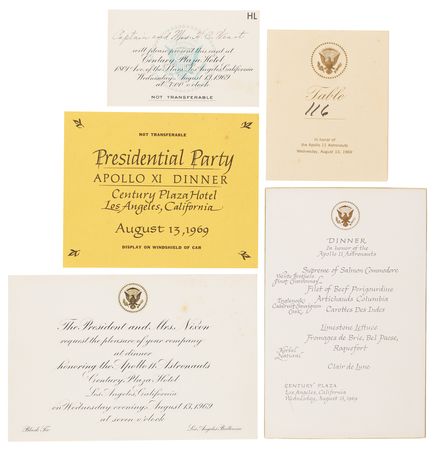 HL
Captain and Mrs.
will please present this card at
Century Plaza Hotel
Ave. of the Stars, Los Angeles, California
Wednesday, August 13, 1969
at 7:00 o'clock
NOT TRANSFERABLE
Table
116
In honor of
the Apollo 11 Astronauts
Wednesday, August 13, 1969
NOT TRANSFERABLE
Presidential Party
APOLLO XI DINNER
Century Plaza Hotel
Los Angeles, California
August 13, 1969
DISPLAY ON WINDSHIELD OF CAR
The President and Mrs. Nixon
request the pleasure of your company
at dinner
honoring the Apollo 11 Astronauts
Century Plaza Hotel
Los Angeles, California
on Wednesday evening, August 13, 1969
at seven o'clock
Black Tie
Los Angeles Ballroom
DINNER
In honor of
the Apollo 11 Astronauts
Supreme of Salmon Commodore
Wente Brothers
Pinot Chardonnay
Filet of Beef Perigourdine
Artichauts Columbia
Carottes Des Indes
Inglenook
Cabernet Sauvignon
Cask
Limestone Lettuce
Fromages de Brie, Bel Paese,
Roquefort
Korbel
Natural
Clair de Lune
CENTURY PLAZA
Los Angeles, California
Wednesday, August 13, 1969